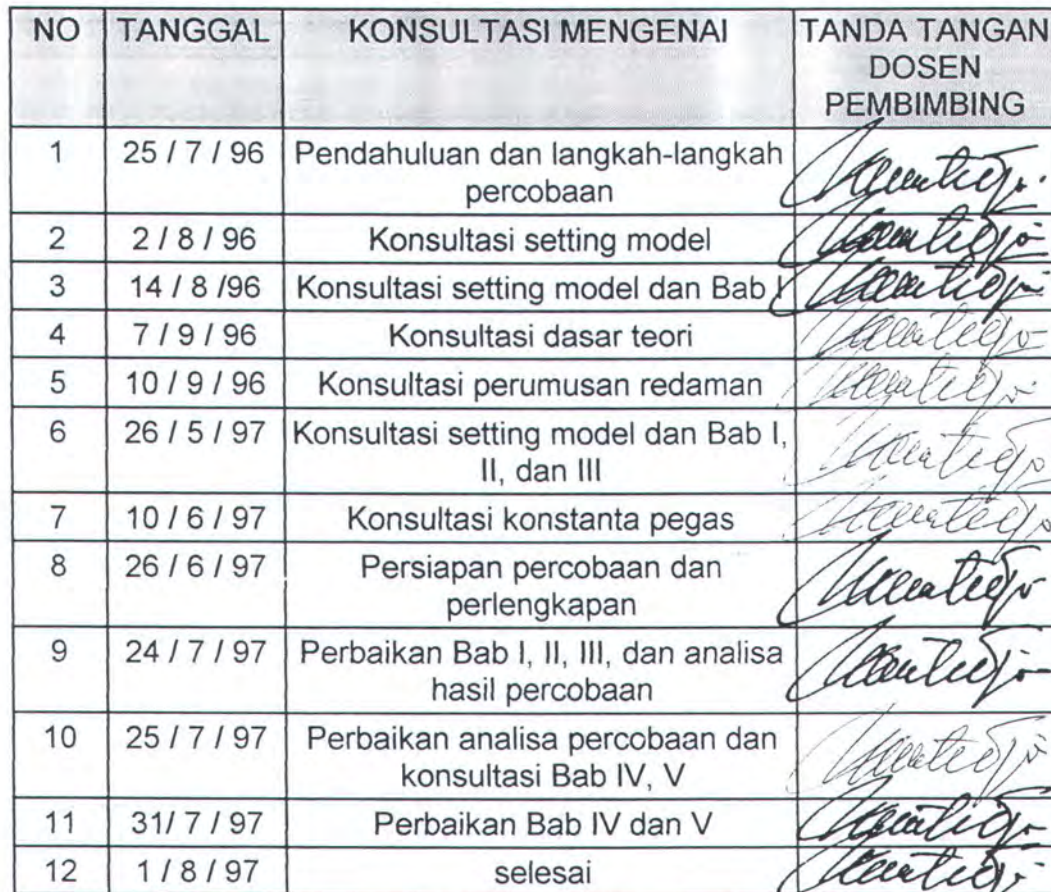 NO TANGGAL KONSULTASI MENGENAI TANDA TANGAN
DOSEN
PEMBIMBING
1 25 / 7 / 96 Pendahuluan dan langkah-langkah
percobaan
2 2 / 8 / 96 Konsultasi setting model
3 14 / 8 /96 Konsultasi setting model dan Bab I
4 7 / 9 / 96 Konsultasi dasar teori
5 10 / 9 / 96 Konsultasi perumusan redaman
6 26 / 5 / 97 Konsultasi setting model dan Bab I,
II, dan III
7 10 / 6 / 97 Konsultasi konstanta pegas
8 26 / 6 / 97 Persiapan percobaan dan
perlengkapan
9 24 / 7 / 97 Perbaikan Bab I, II, III, dan analisa
hasil percobaan
10 25 / 7 / 97 Perbaikan analisa percobaan dan
konsultasi Bab IV, V
11 31/ 7 / 97 Perbaikan Bab IV dan V
12 1 / 8 / 97 selesai